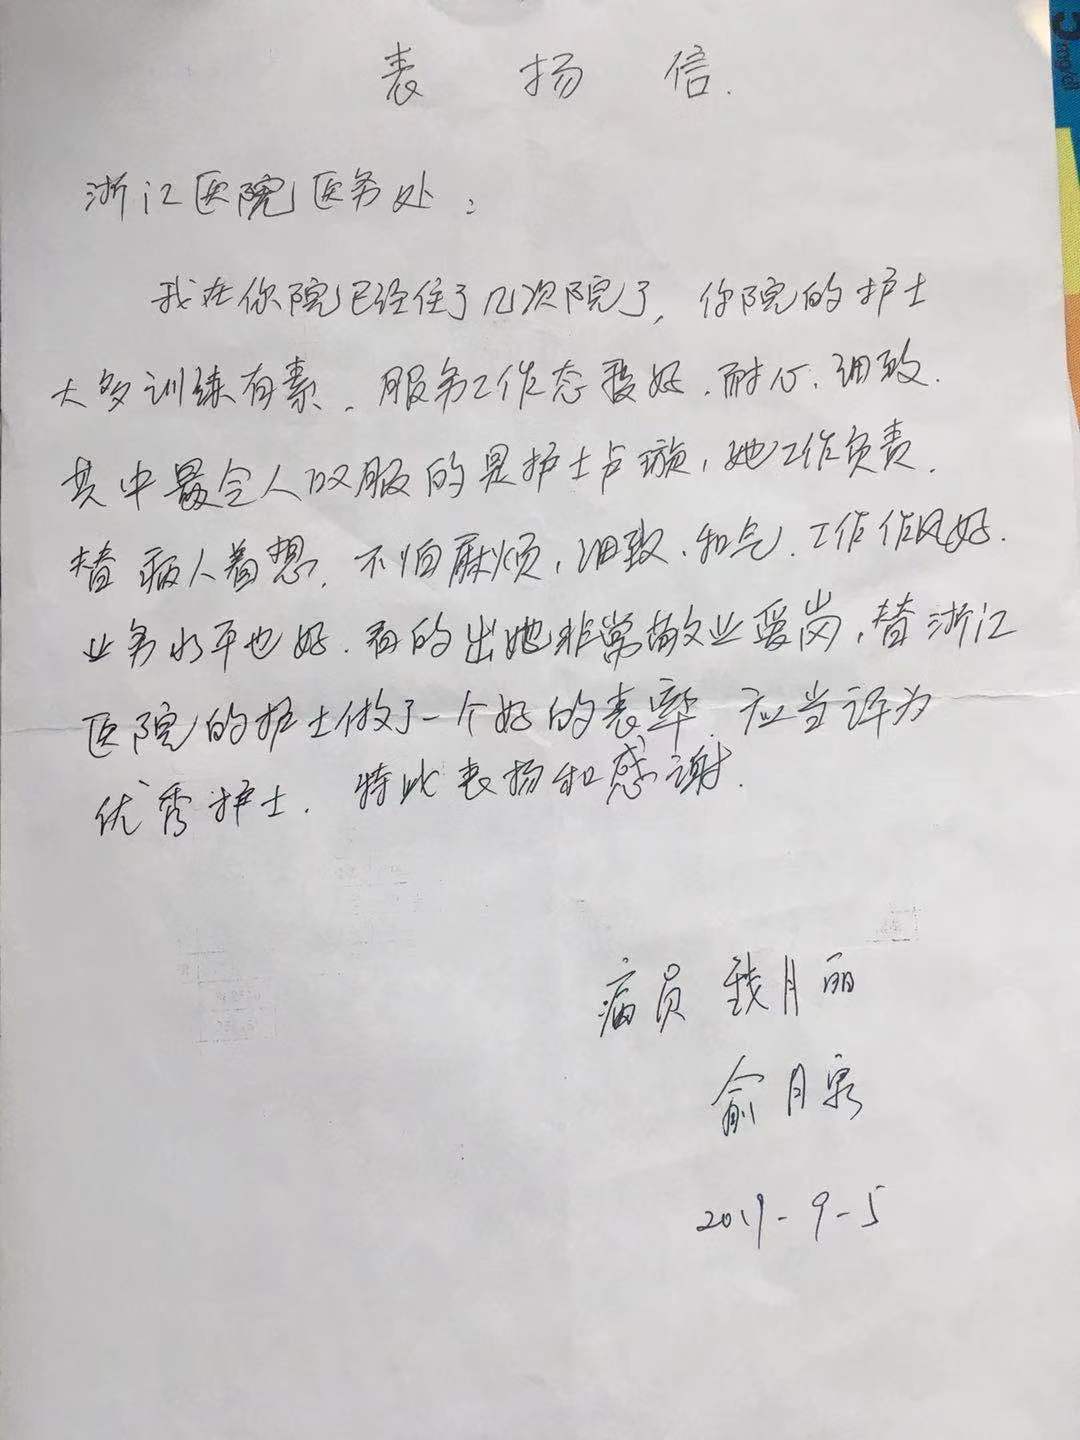 表 扬 信.
浙江医院医务处：
我在你院已经住了几次院了，你院的护士
大多训练有素。服务工作态度好.耐心、细致.
其中最令人叹服的是护士卢璇，她工作负责.
替病人着想，不怕麻烦，细致、和气、工作作风好.
业务水平也好.看的出她非常敬业爱岗，替浙江
医院的护士做了一个好的表率，应当评为
优秀护士. 特此表扬和感谢.
病员 钱月丽
俞月泉
2019-9-5